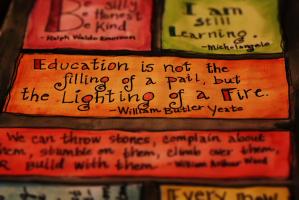 Be Silly
Be Honest
Be Kind
- Ralph Waldo Emerson
I am
Still
Learning.
- Michelangelo
Education is not the
filling of a pail, but
the Lighting of a Fire.
- William Butler Yeats
We can throw stones, complain about
them, stumble on them, climb over them,
OR build with them. - William Arthur Ward
Every now